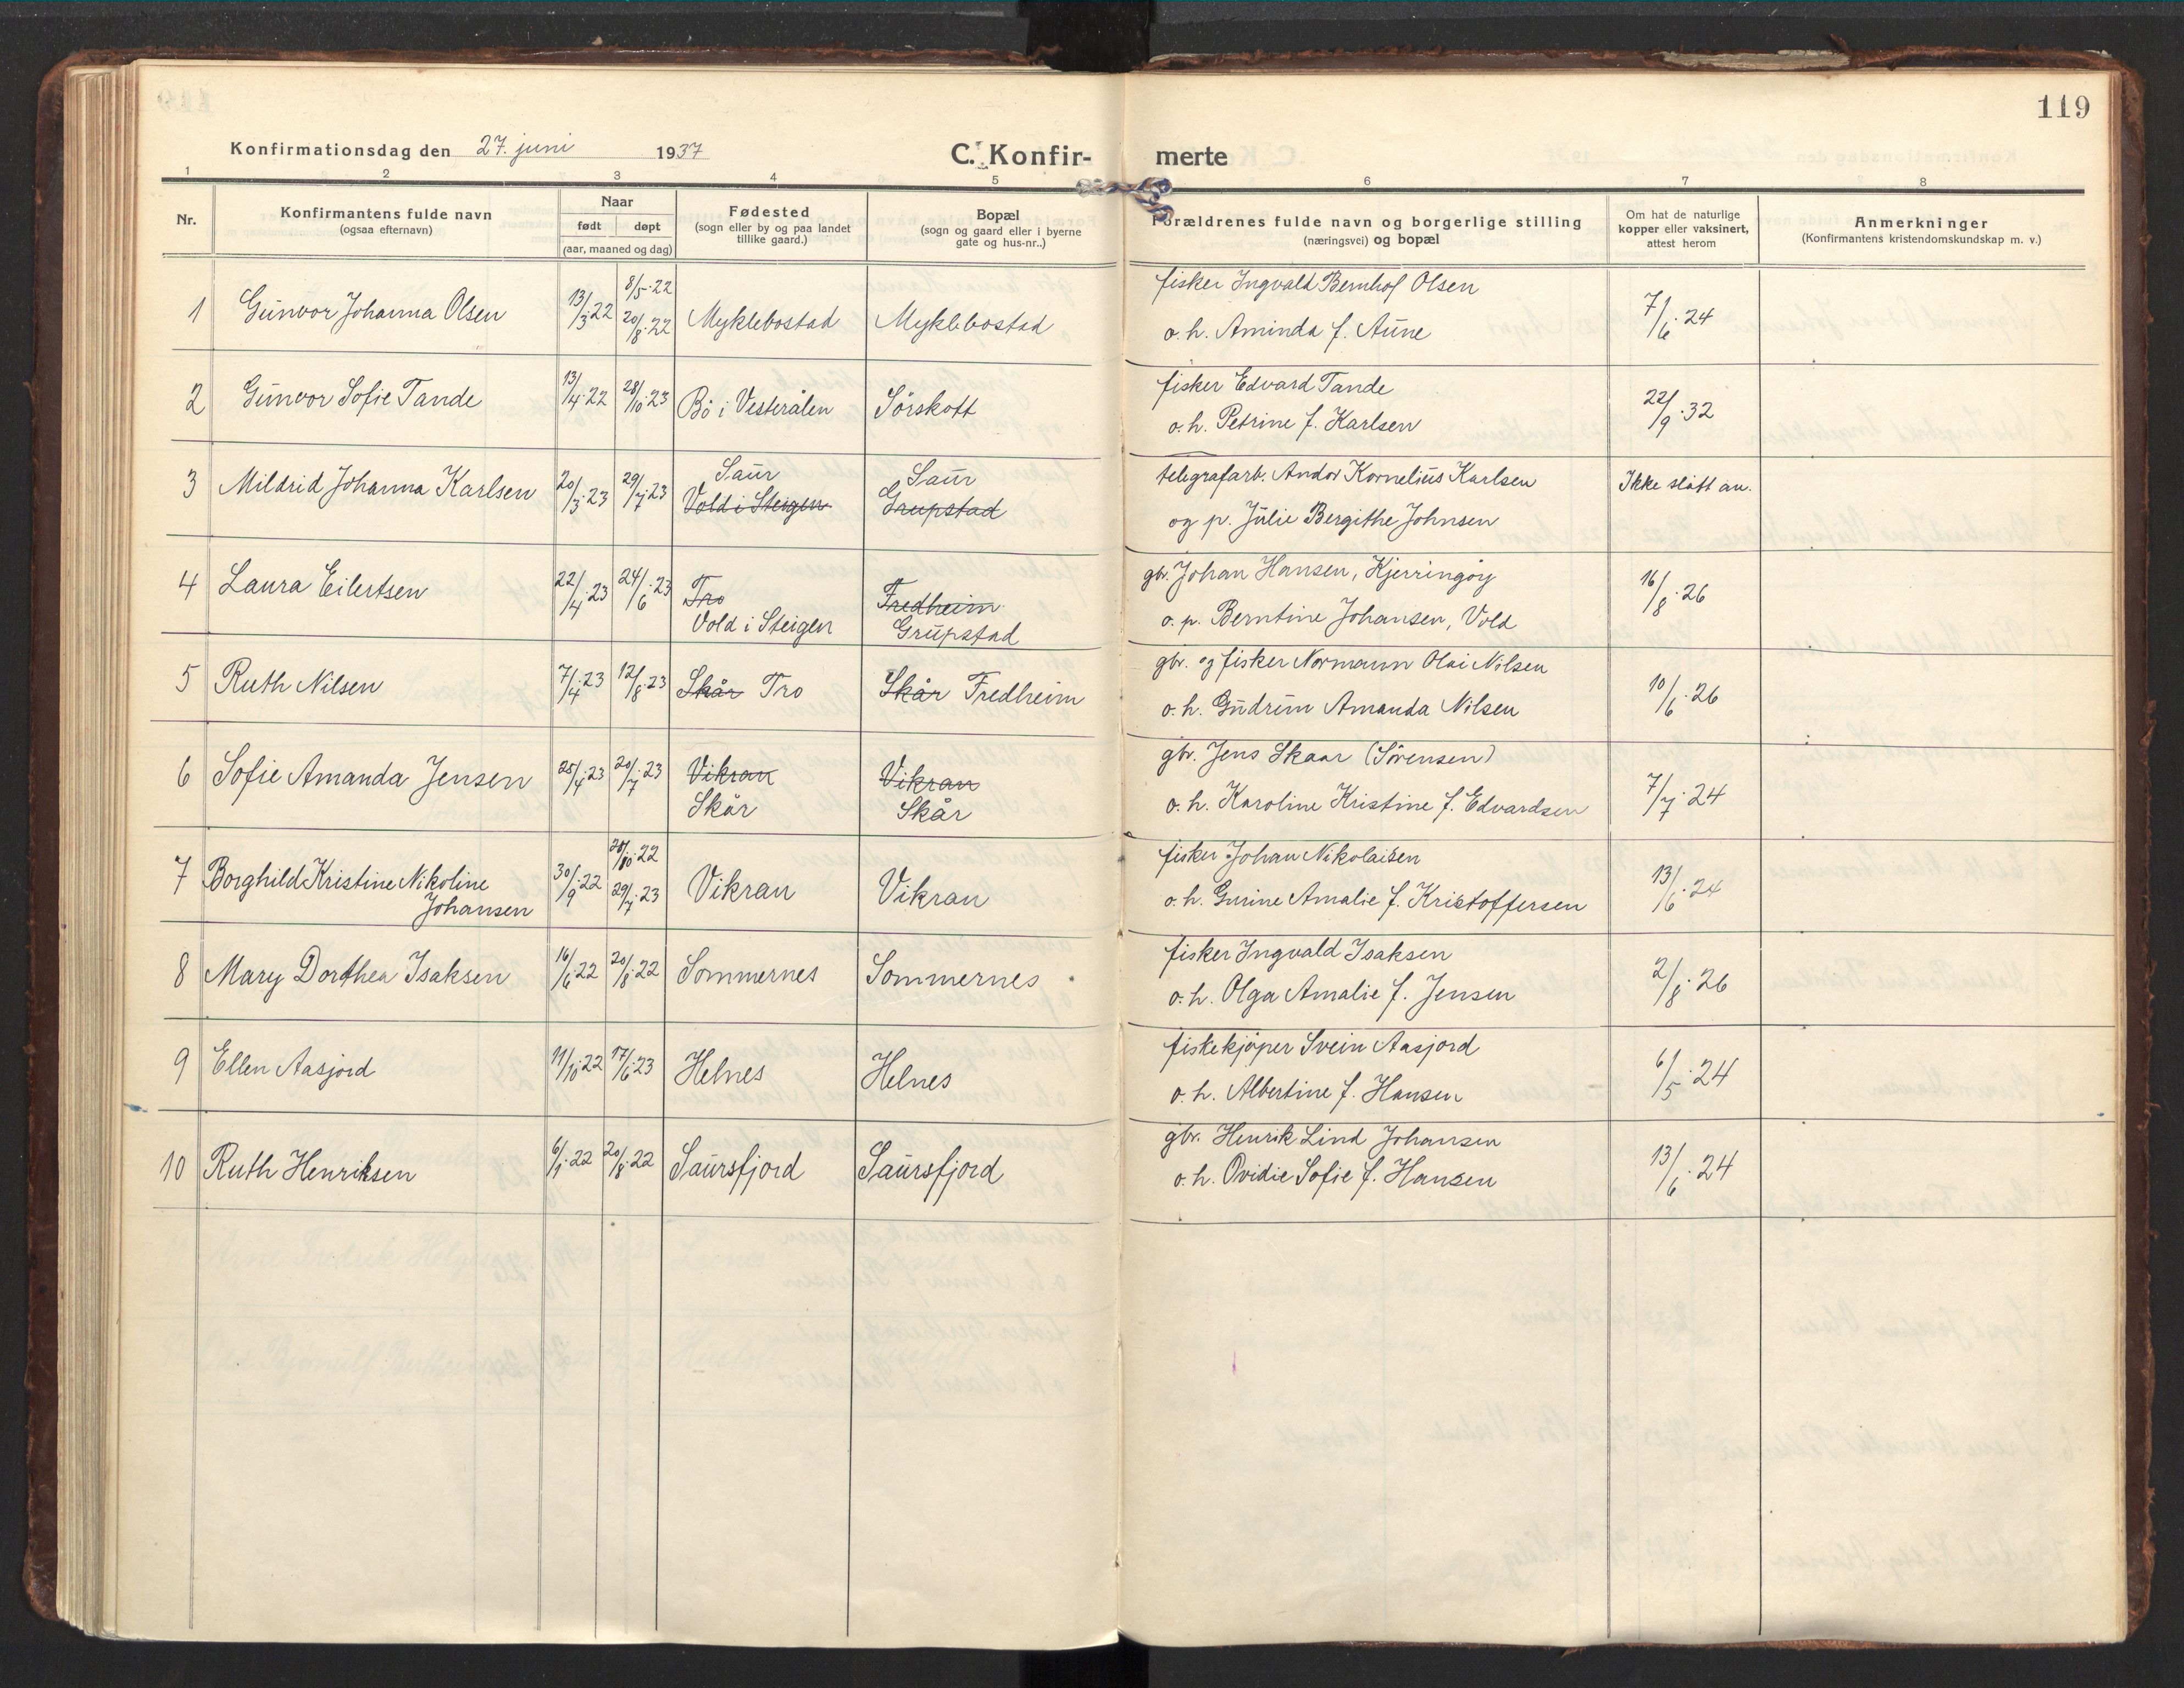 119
Konfirmationsdag den 27. juni 1937
C. Konfir-
merte
1 2 3 4 5 6 7 8
Nr.
Konfirmantens fulde navn
(ogsaa efternavn)
Naar
født døpt
(aar, maaned og dag)
Fødested
(sogn eller by og paa landet
tillike gaard.)
Bopæl
(sogn og gaard eller i byerne
gate og hus-nr..)
Forældrenes fulde navn og borgerlige stilling
(næringsvei) og bopæl
Om hat de naturlige
kopper eller vaksinert,
attest herom
Anmerkninger
(Konfirmantens kristendomskundskap m. v.)
8/5.22
1 Gunvor Johanna Olsen 13/3 22 20/8.22 Myklebostad Myklebostad
fisker Ingvald Bernhof Olsen
o. h. Aminda f. Aune
7/6.24
2 Gunvor Sofie Tande 13/4.22 28/10.23 Bö i Vesterålen Sörskott
fisker Edvard Tande
o. h. Petrine f. Karlsen
22/9.32
3 Mildrid Johanna Karlsen 20/3.23 29/7.23 Saur Saur
Vold i Steigen Grupstad
telegrafarb. Andor Kornelius Karlsen
og p. Julie Bergithe Johnsen
Ikke slått an.
4 Laura Eilertsen 22/4.23 24/6.23 Tro Fredheim
Vold i Steigen Grupstad
gbr. Johan Hansen, Kjerringöy
o. p. Berntine Johansen, Vold
16/8.26
5 Ruth Nilsen 7/4.23 12/8.23 Skår Tro Skår Fredheim
gbr. og fisker Normann Olai Nilsen
o. h. Gudrun Amanda Nilsen
10/6.26
6 Sofie Amanda Jensen 25/4.23 29/7.23 Vikran Vikran
Skår Skår
gbr. Jens Skaar (Sörensen)
o. h. Karoline Kristine f. Edvardsen
7/7.24
28/10.22
7 Borghild Kristine Nikoline 30/9.22 29/7.23 Vikran Vikran
Johansen
fisker Johan Nikolaisen
o. h. Gurine Amalie f. Kristoffersen
13/6.24
8 Mary Dorthea Isaksen 16/6.22 20/8.22 Sommernes Sommernes
fisker Ingvald Isaksen
o. h. Olga Amalie f. Jensen
2/8.26
9 Ellen Aasjord 11/10.22 17/6.23 Helnes Helnes
fiskekjöper Svein Aasjord
o. h. Albertine f. Hansen
6/5.24
10 Ruth Henriksen 6/1.22 20/8.22 Saursfjord Saursfjord
gbr. Henrik Lind Johansen
o. h. Ovidie Sofie f. Hansen
13/6.24